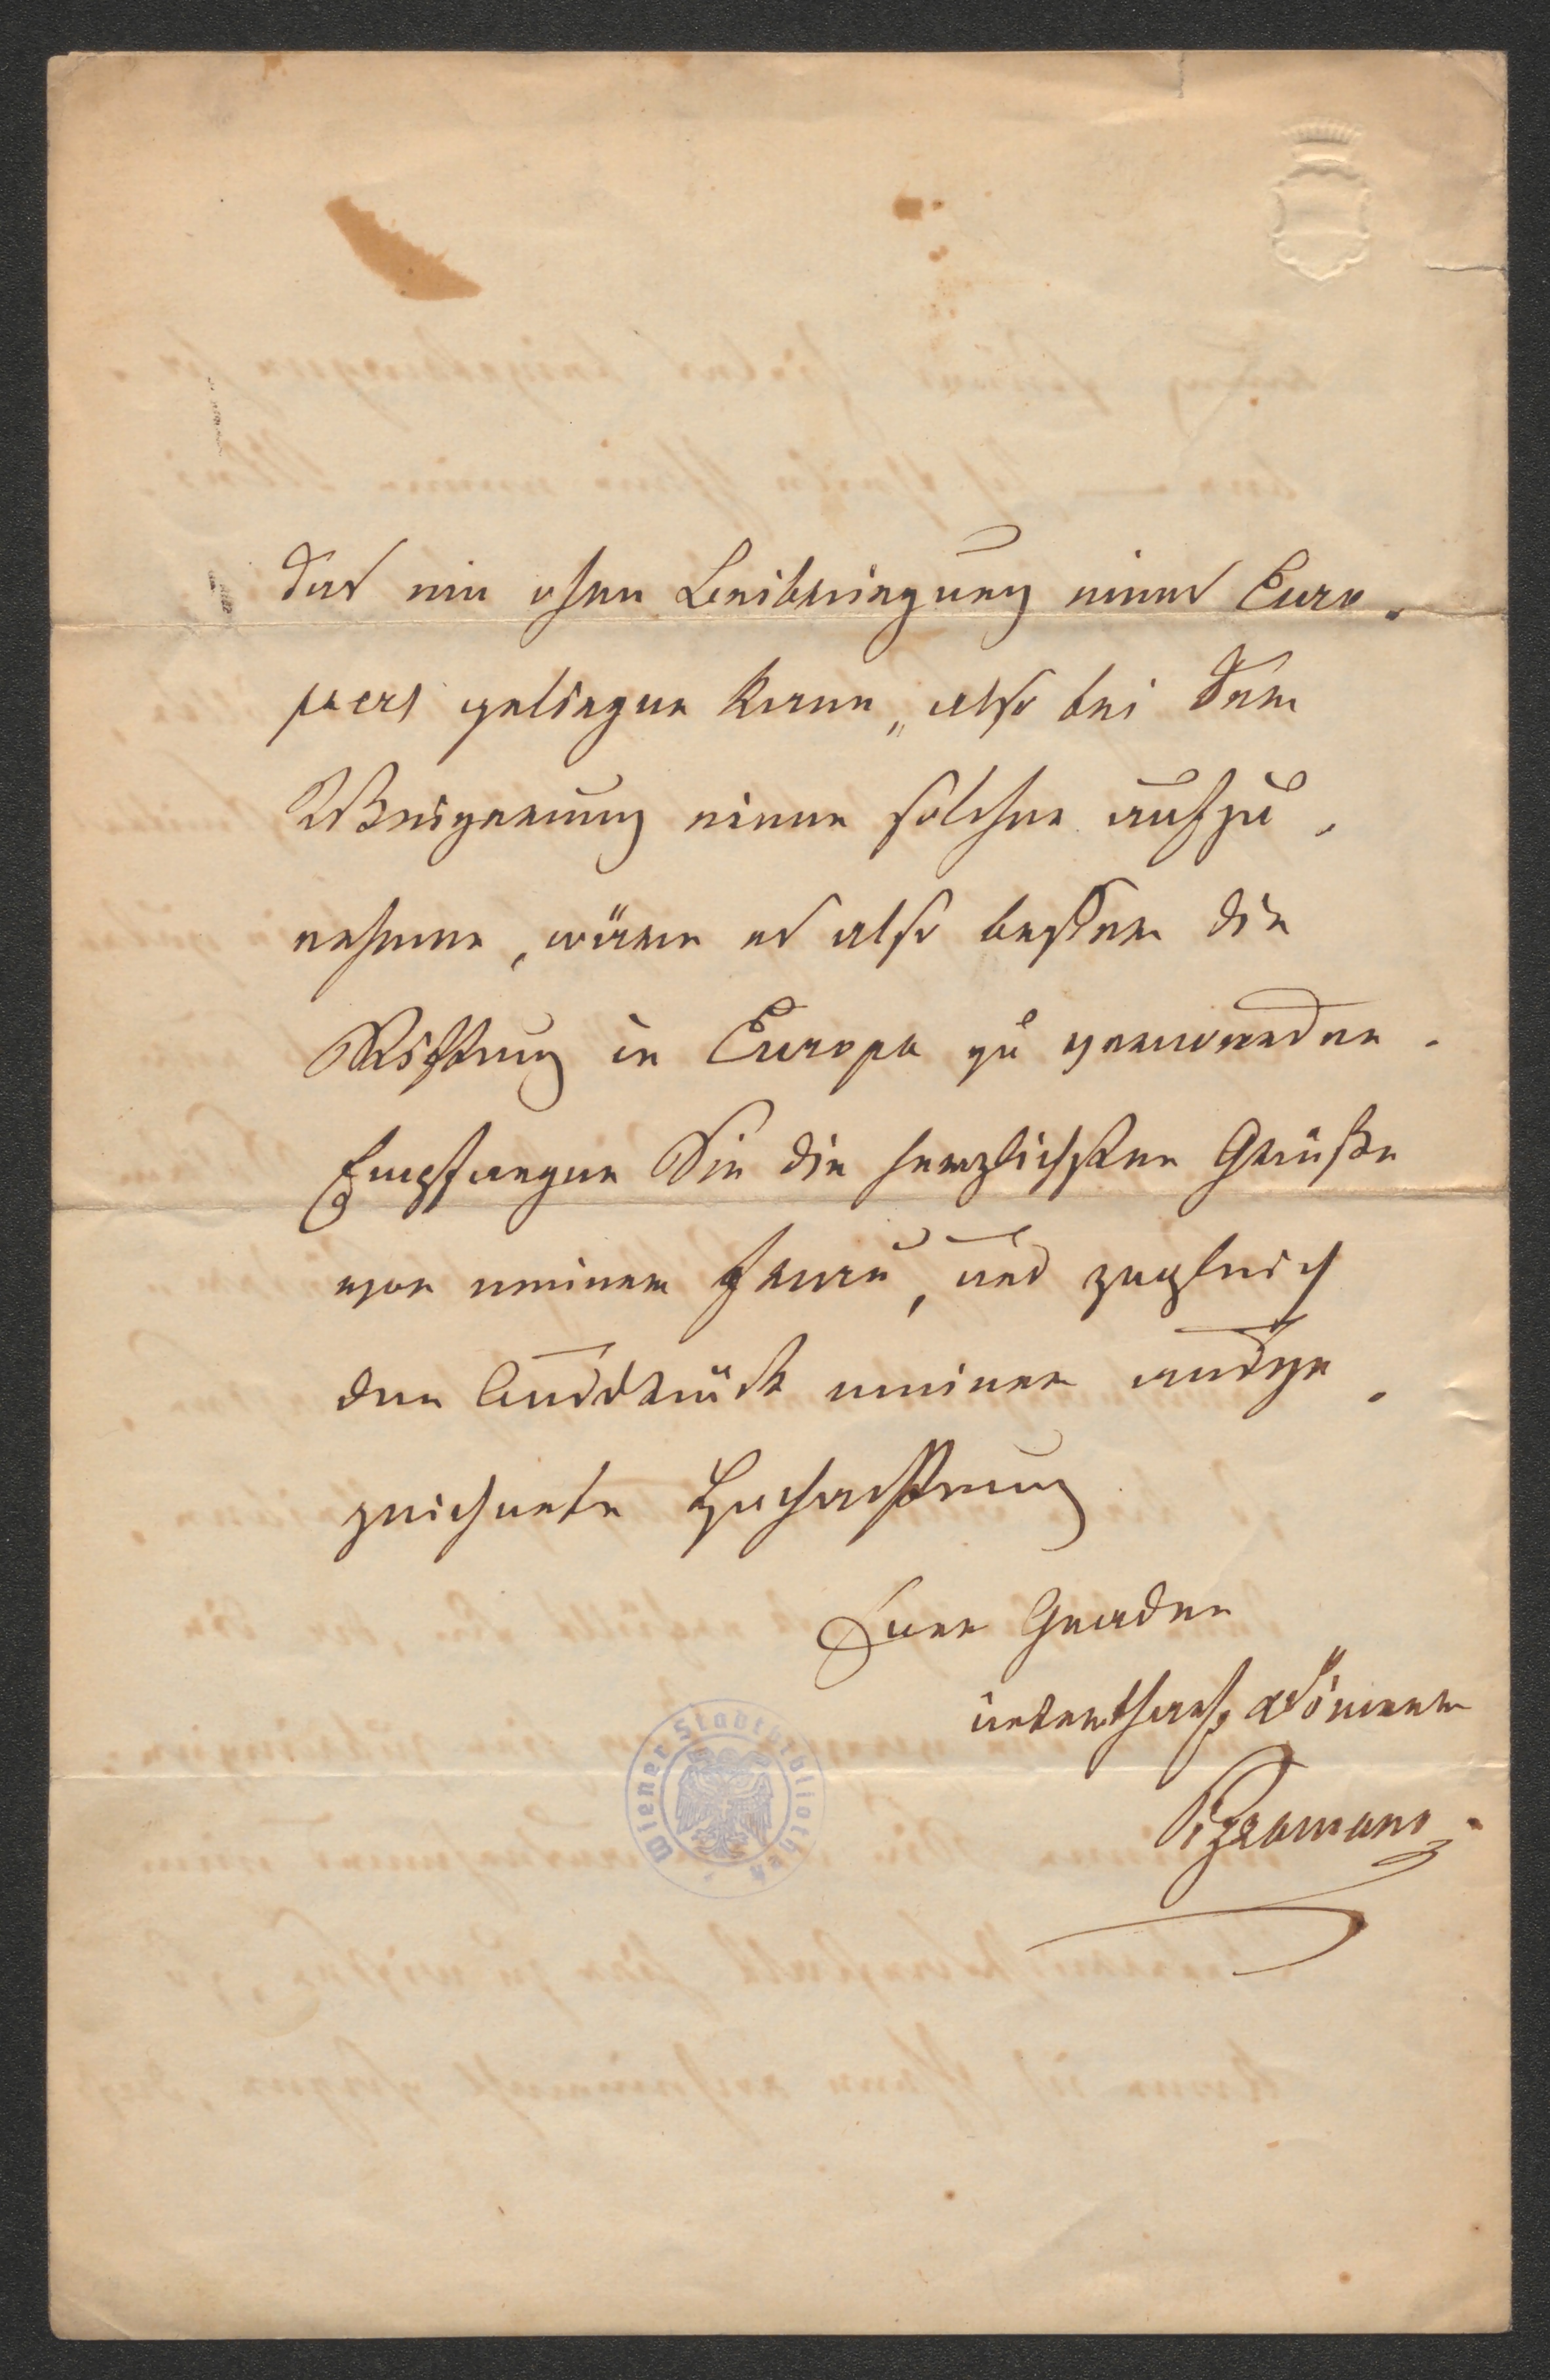 das nie ohne Beibringung eines Euro-
päers gelingen kann, also bei der
Weigerung einen solchen aufzu-
nehmen, wäre es also besser die
Stiftung in Europa zu verwenden.
Empfangen Sie die herzlichsten Grüße
von meiner Frau, und zugleich
den Ausdruck meiner ausge-
zeichneten Hochachtung
Euer Gnaden
unterthgst Diener
Pizzamano
Wiener Stadtbibliothek